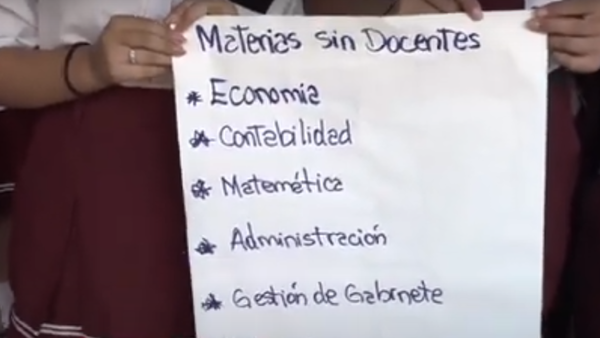 Materias sin Docentes
* Economia
* Contabilidad
* Matemética
* Administración
* Gestión de Gabrnete